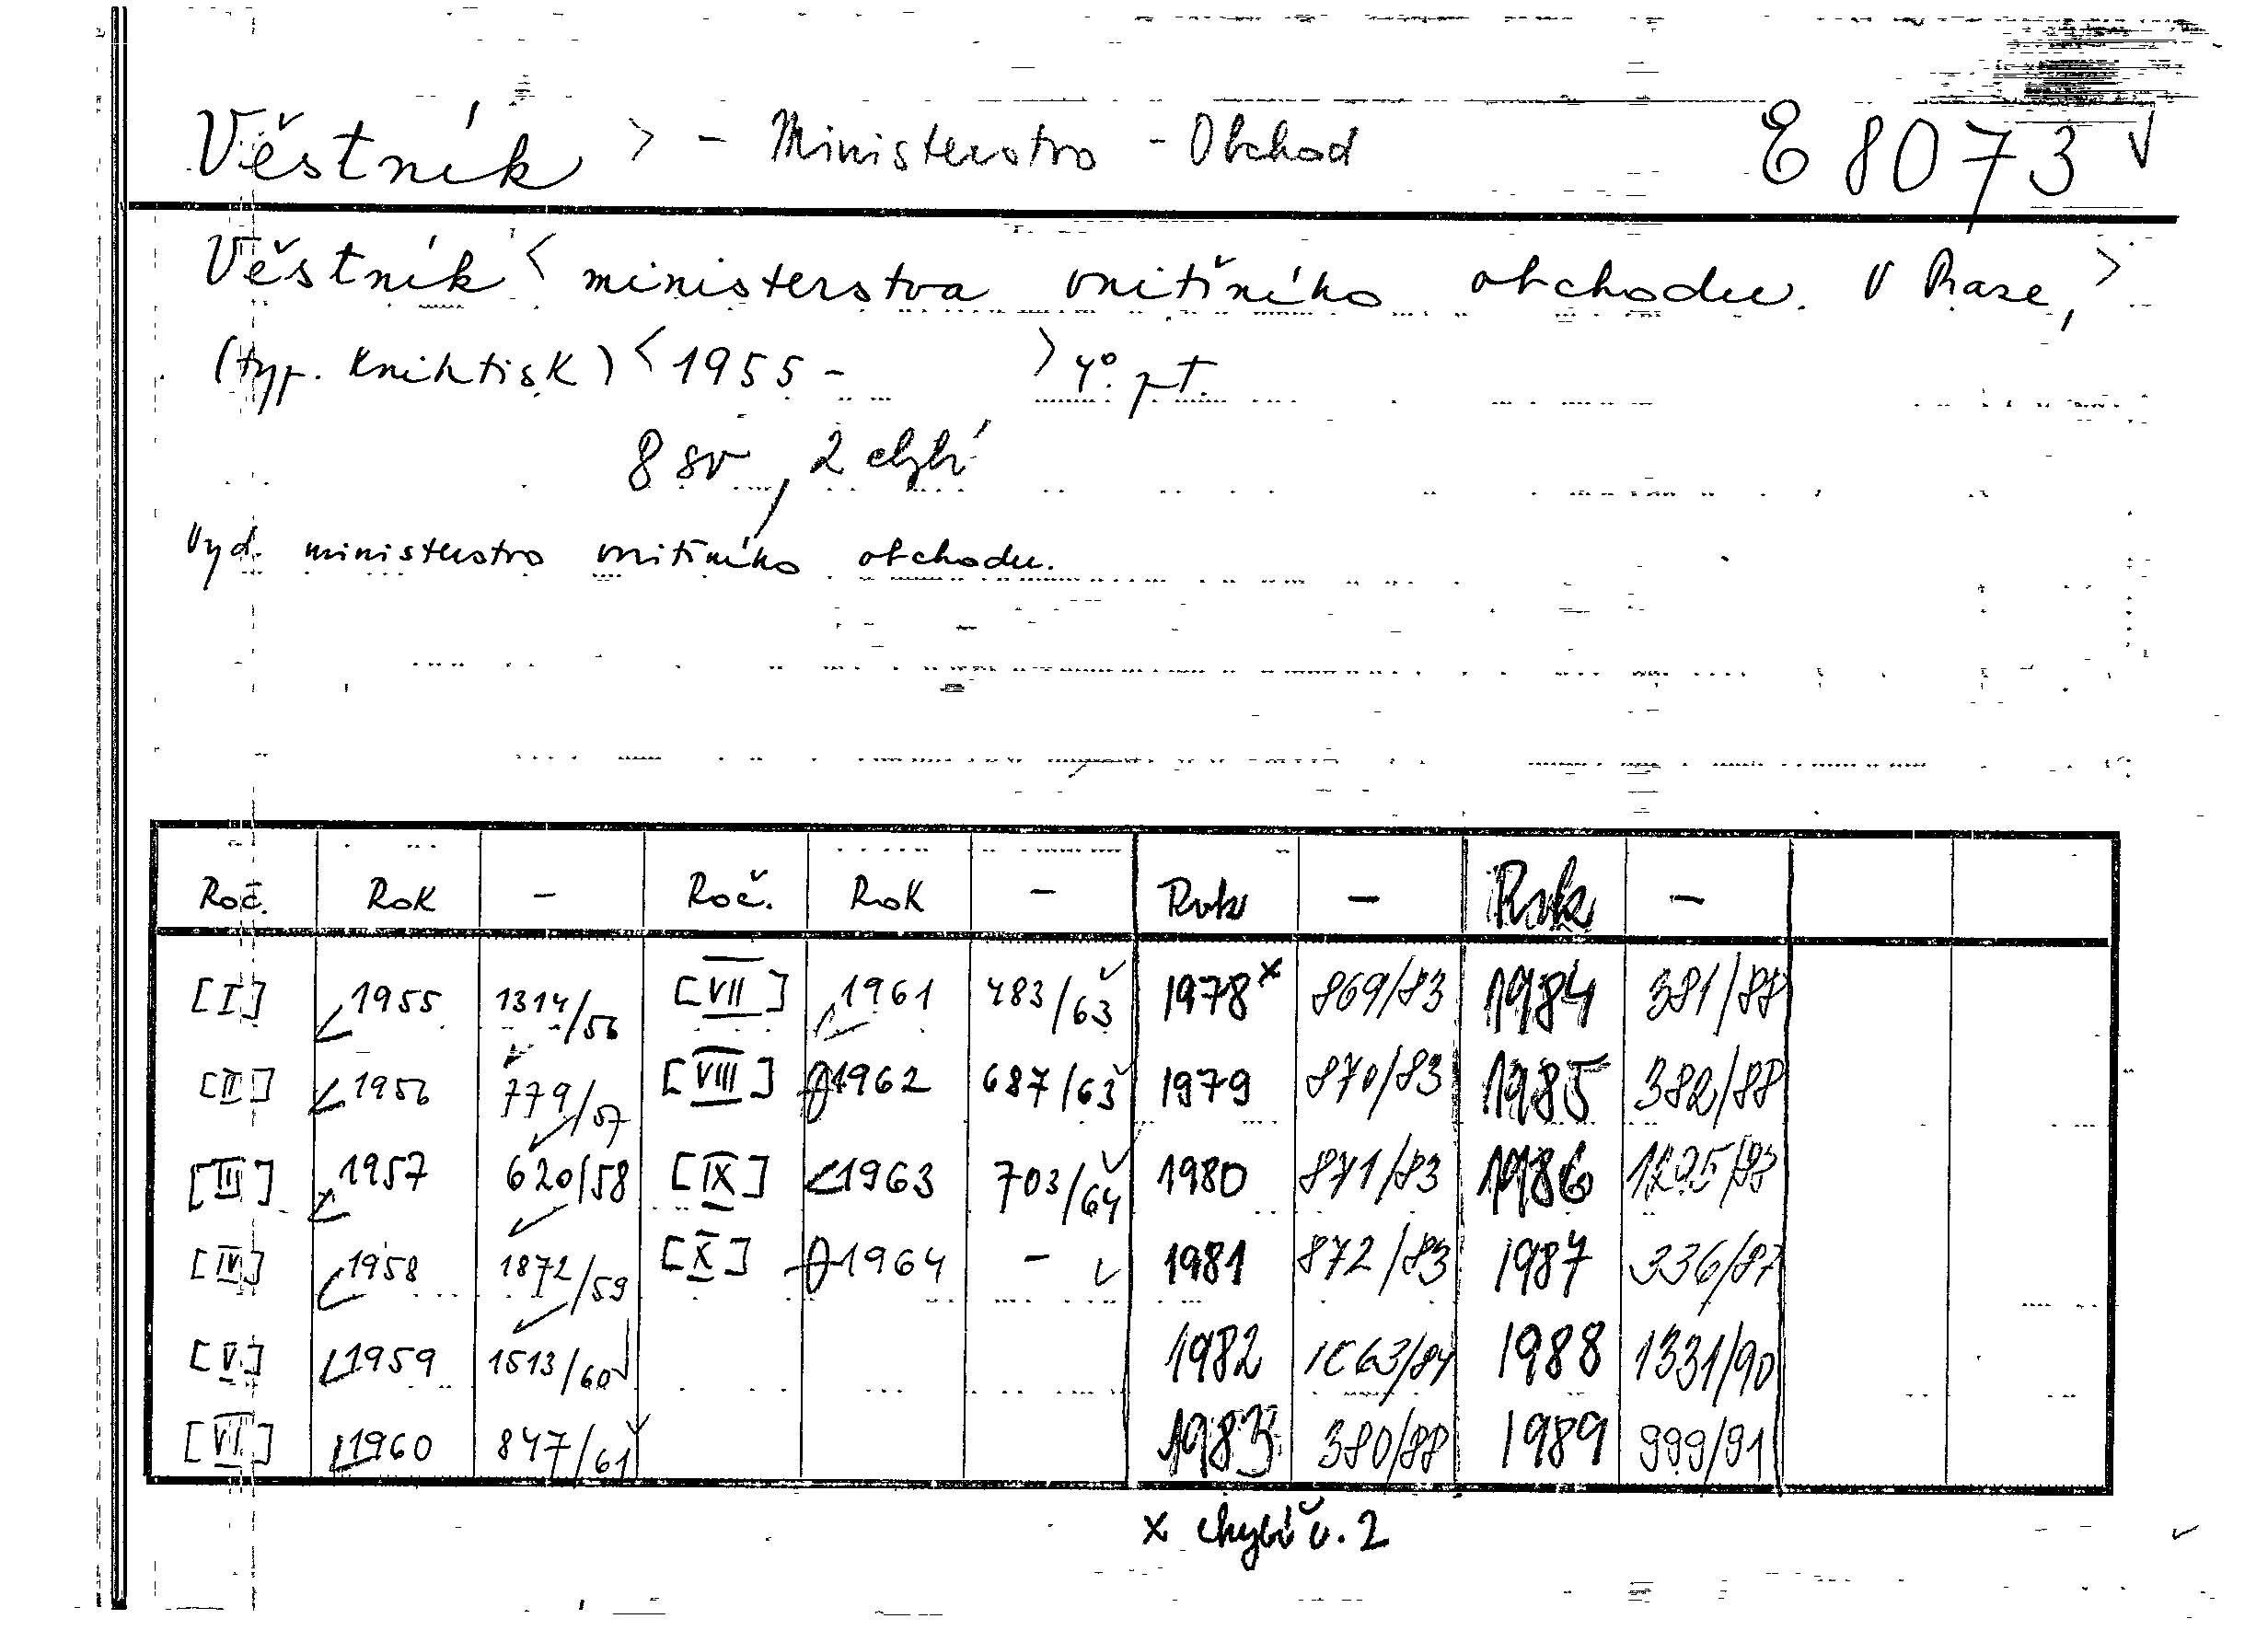 Věstník > - Ministerstvo - Obchod E 8073
Věstník < ministerstva vnitřního obchodu. V Praze, >
(typ. Knihtisk) < 1955 - > 4°. pt.
8 sv, 2 chybí
Vyd. ministerstvo vnitřního obchodu.
Roč. Rok - Roč. Rok - Rok - Rok -
[I] 1955 1314/56 [VII] 1961 483/63 1978x 869/83 1984 381/88
[II] 1956 779/57 [VIII] 1962 687/63 1979 870/83 1985 382/88
[III] 1957 620/58 [IX] 1963 703/64 1980 871/83 1986
[IV] 1958 1872/59 [X] 1964 - 1981 872/83 1987 336/87
[V] 1959 1513/60 1982 1063/84 1988 1331/90
[VI] 1960 847/61 1983 380/88 1989 999/91
x chybí č. 2